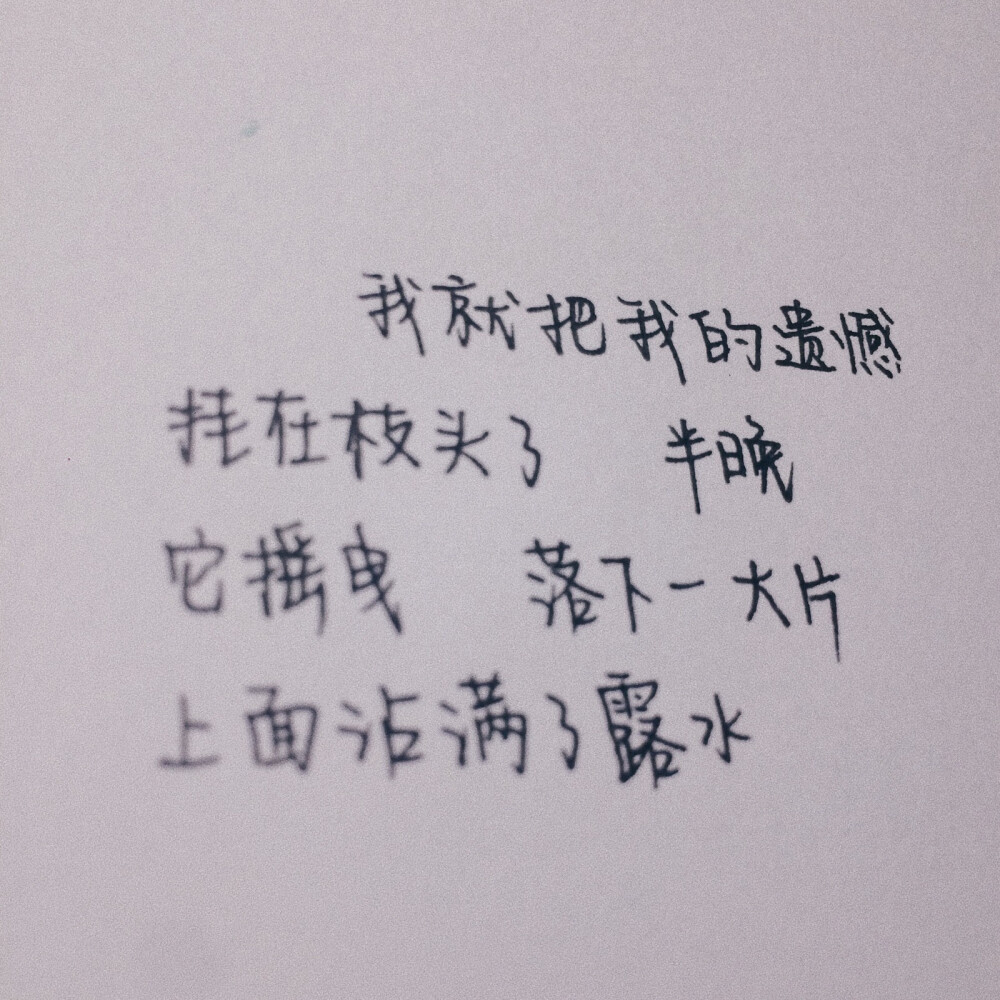 我就把我的遗憾
挂在枝头了 半晚
它摇曳 落下一大片
上面沾满了露水